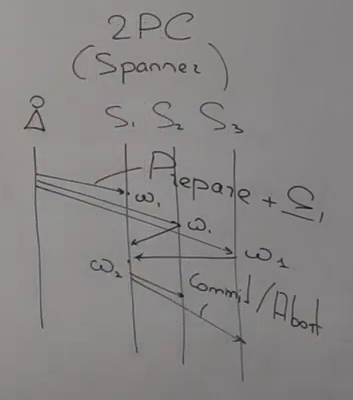 2PC
(Spanner)
S₁ S₂ S₃
Prepare +
ω₁
ω₁
ω₁
ω₂
Commit/Abort